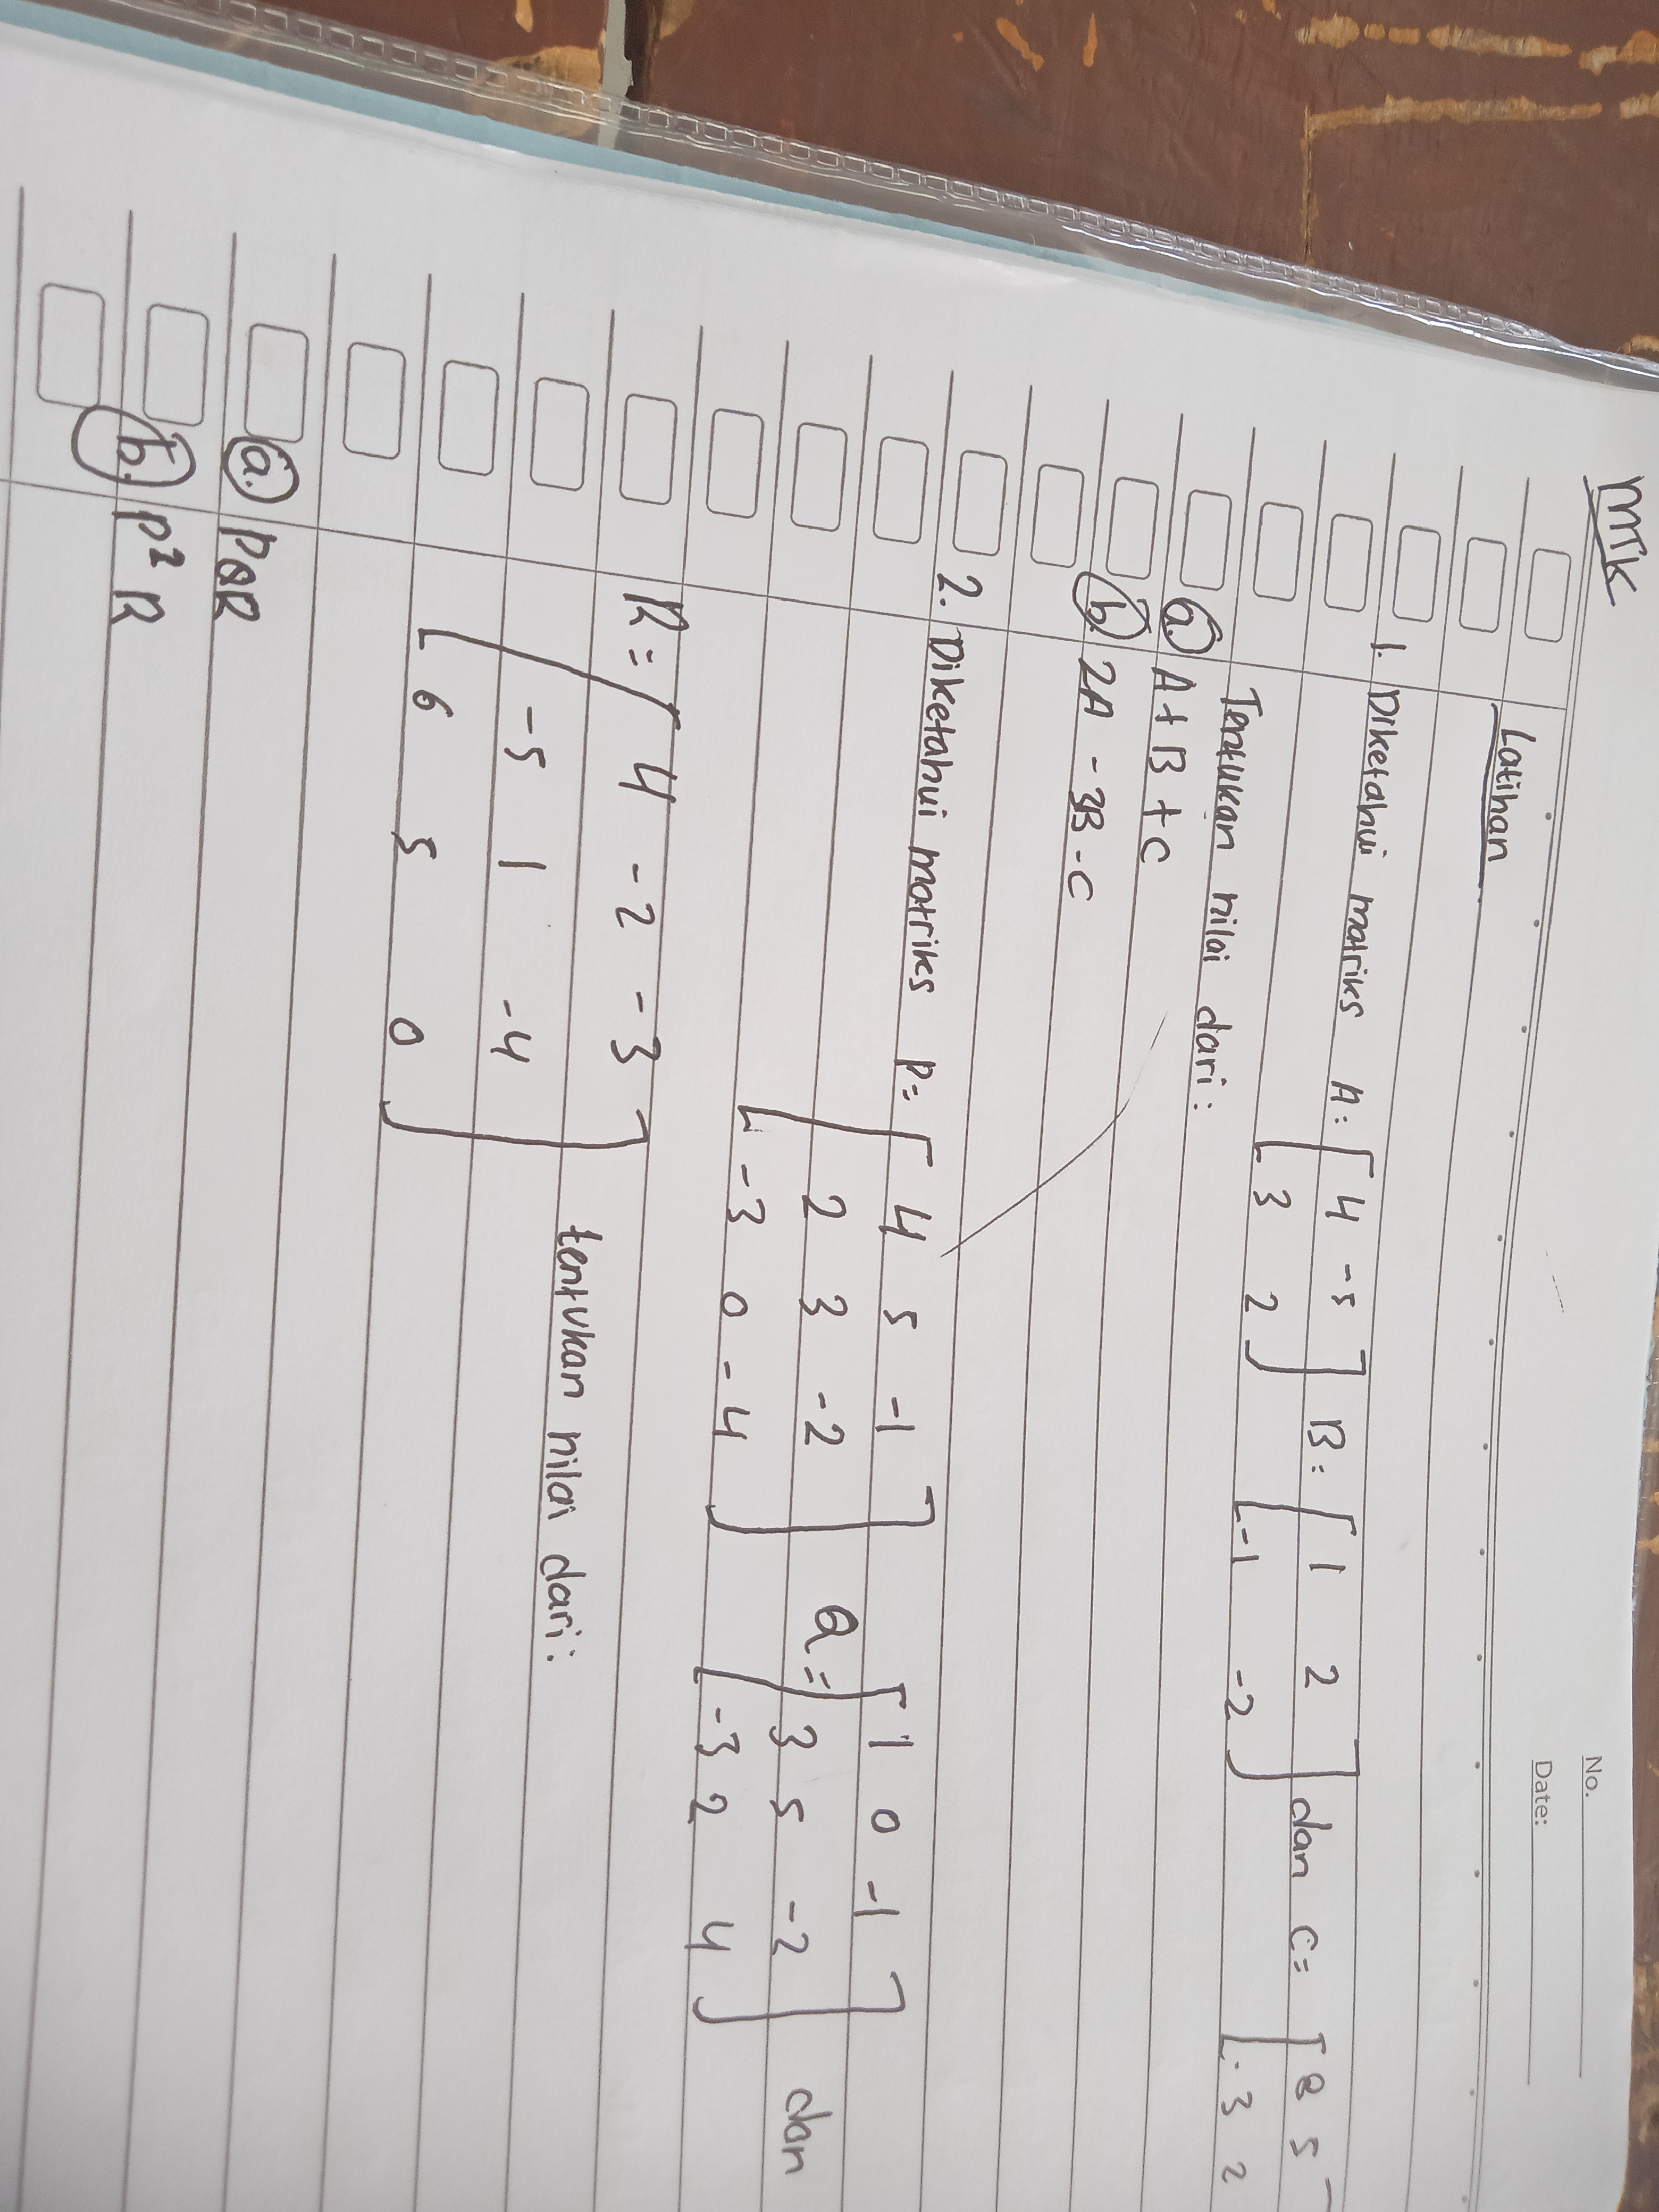 MTK
No.
Date:
Latihan
1. Diketahui matriks A = [ 4 -5 ] B = [ 1 2 ] dan C = [ 8 5
[ 3 2 ] [ -1 -2 ] [ -3 2
Tentukan nilai dari :
a. A + B + C
b. 2A - 3B - C
2. Diketahui matriks P = [ 4 5 -1 ] Q = [ 1 0 -1 ]
[ 2 3 -2 ] [ 3 5 -2 ] dan
[ -3 0 -4 ] [ -3 2 4 ]
R = [ 4 -2 -3 ]
[ -5 1 -4 ] tentukan nilai dari :
[ 6 5 0 ]
a. PQR
b. P² R